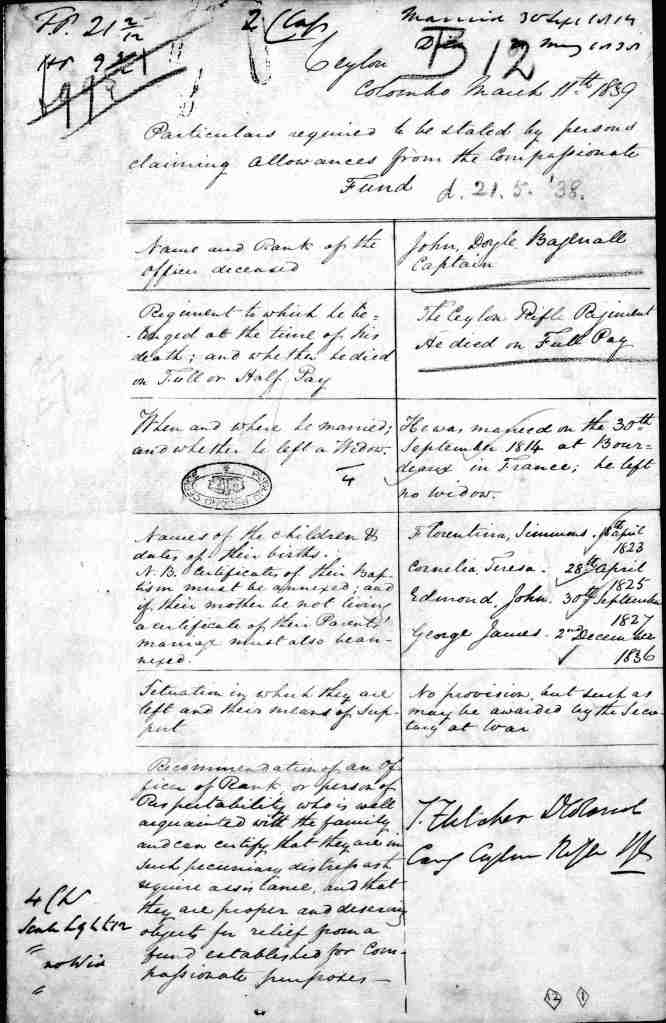 FP. 21 2/12
HP. 9
2 Clap
Married 30 Sept 1814
B 12
Ceylon
Colombo March 11th 1839
Particulars required to be stated by persons
claiming allowances from the Compassionate
Fund d. 21. 5. '38.
Name and Rank of the
officer deceased
John, Doyle Bagenall
Captain
Regiment to which he be=
=longed at the time of his
death; and whether he died
on Full or Half Pay
The Ceylon Rifle Regiment
He died on Full Pay
When and where he married;
and whether he left a Widow.
4
He was married on the 30th
September 1814 at Bour=
deaux in France; he left
no widow.
Names of the children &
dates of their births.
N.B. Certificates of their Bap=
tism must be annexed; and
if their mother be not living
a certificate of their Parents'
marriax must also be an=
nexed.
Florentina, Simmons. April
1823
Cornelia, Teresa. 28th April
1825
Edmond, John. 30th September
1827
George James. 2nd December
1836
Situation in which they are
left and their means of sup=
port
No provision, but such as
may be awarded by the Secre=
tary at War
Recommendation of an Of=
ficer of Rank, or person of
Respectability who is well
acquainted with the family
and can certify that they are in
such pecuniary distress as to
require assistance, and that
they are proper and deserving
objects for relief from a
fund established for Com=
passionate purposes—
T. Fletcher Lt Colonel
Comg Ceylon Rifle Rgt
4 Ch
no Wid
12
1